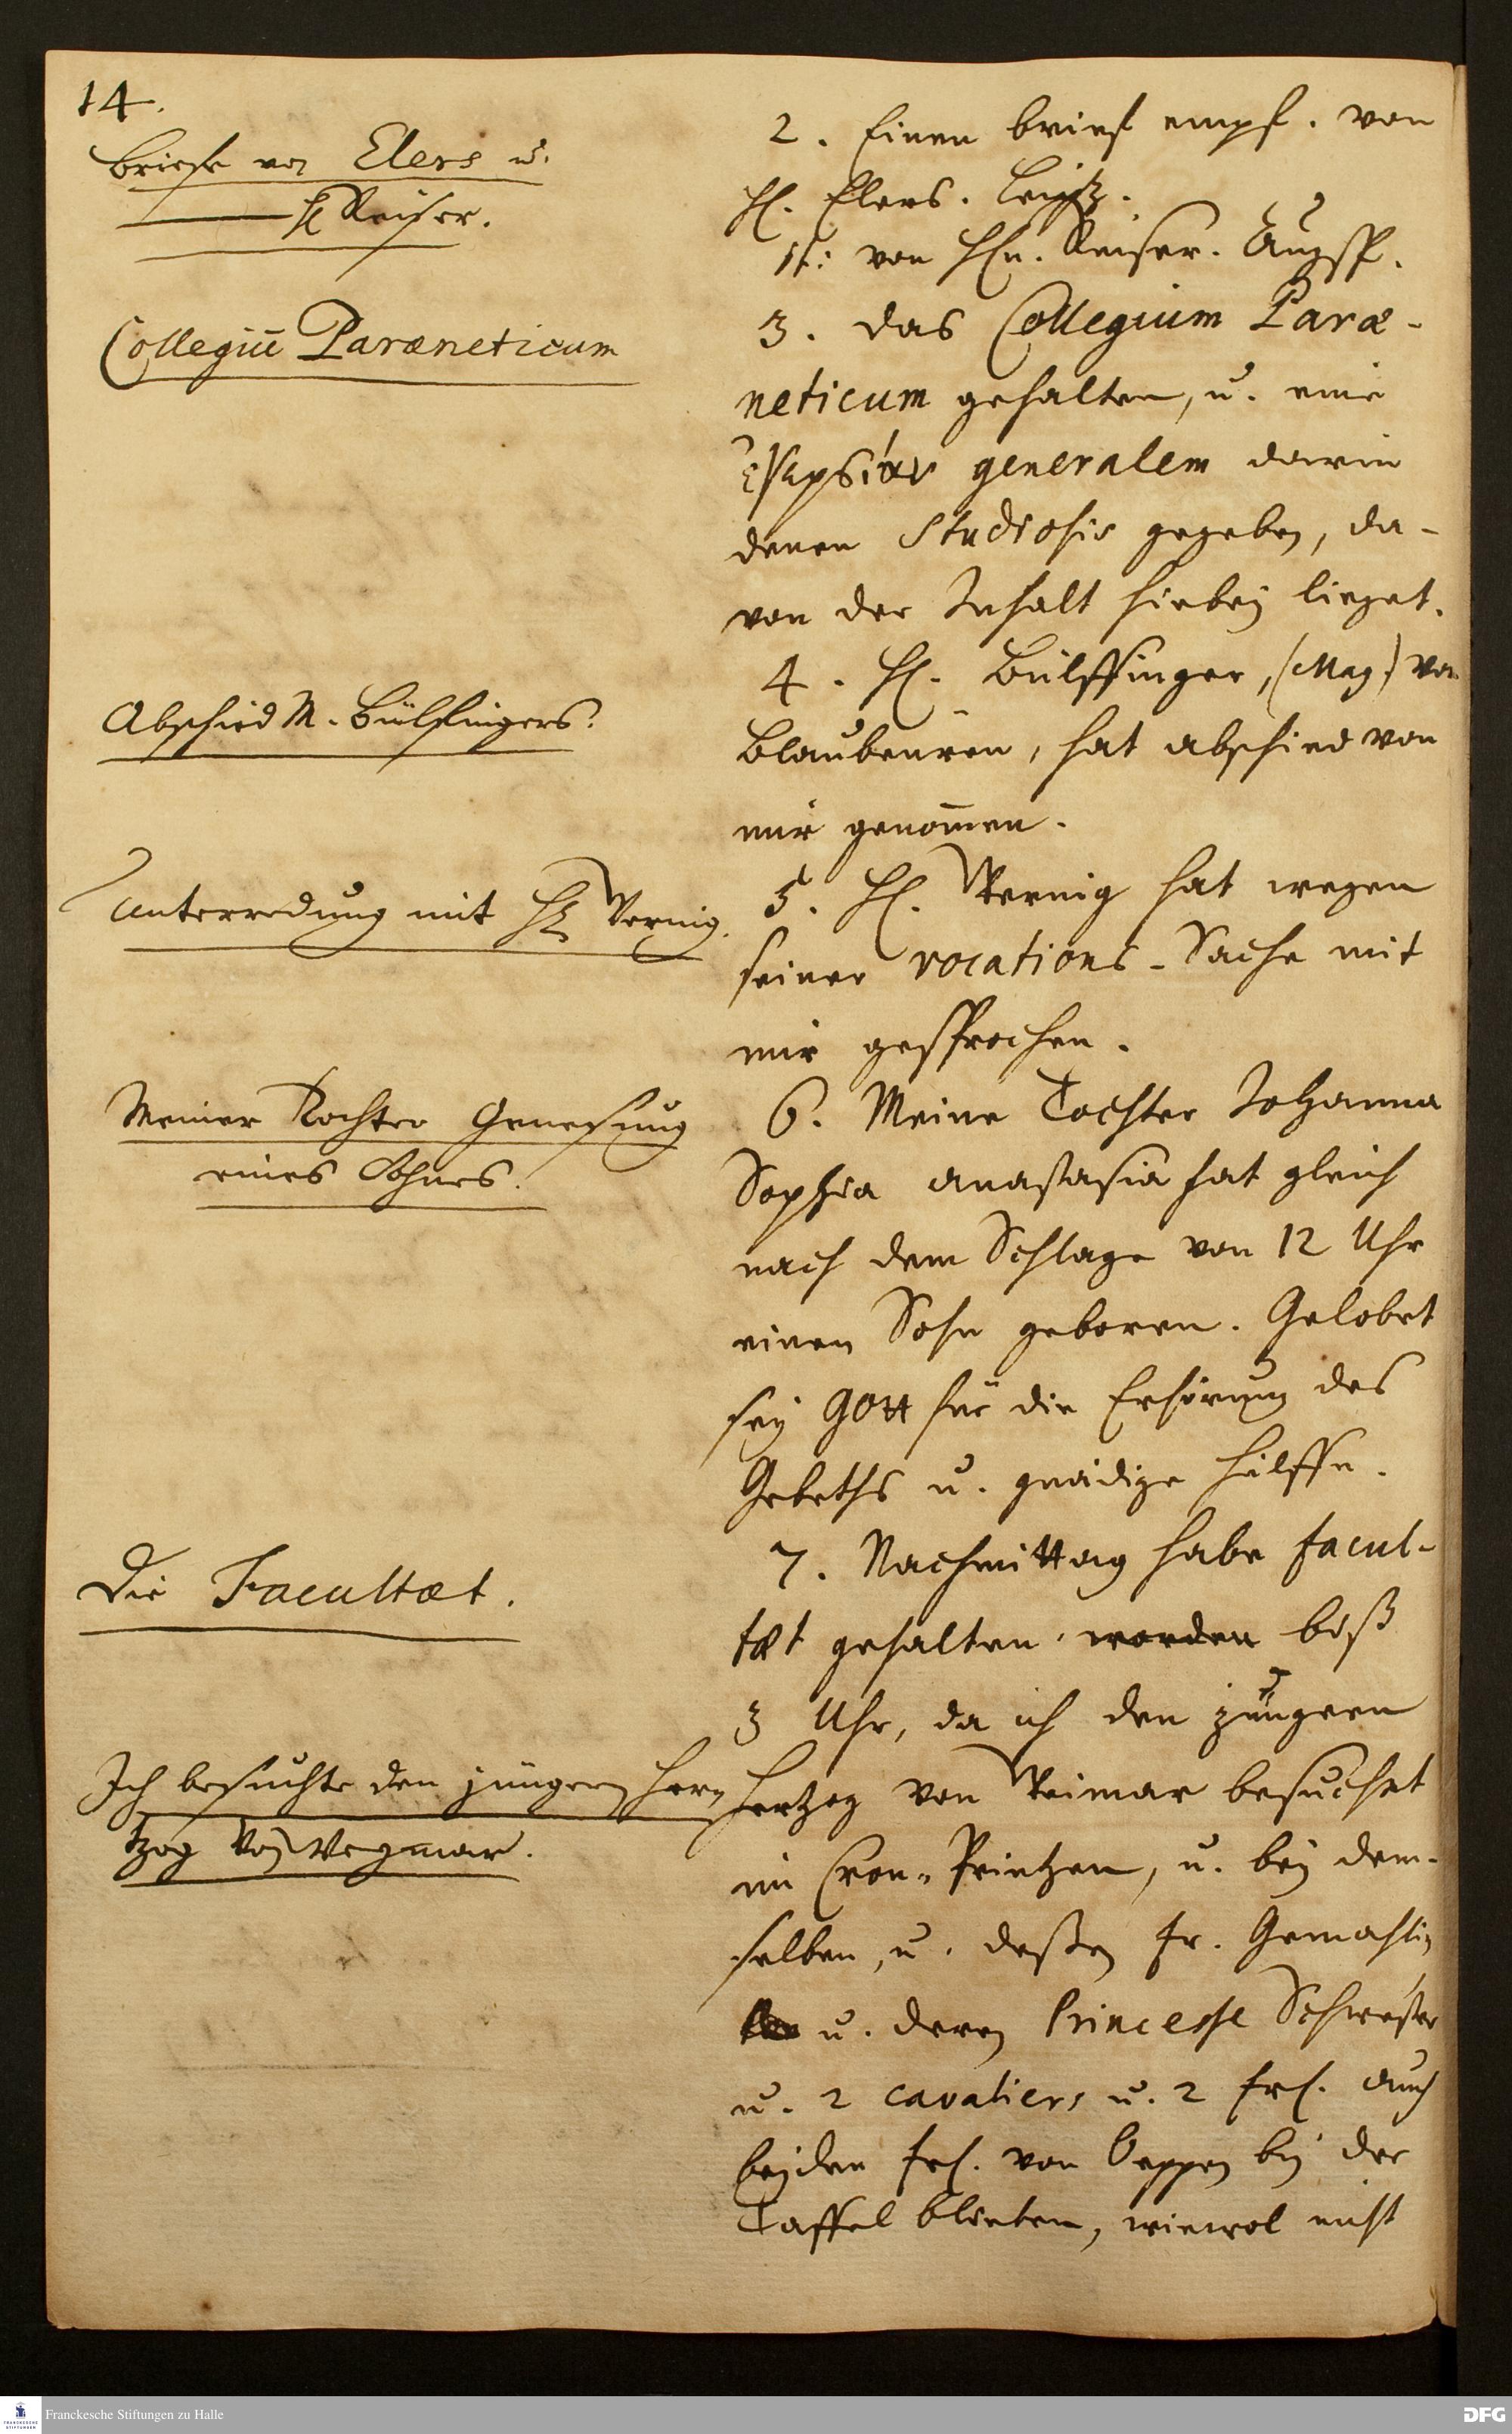 14.
Briefe von Elers u.
H. Reiser.
Collegiū Paræneticum
Abschied M. Bülfingers.
Unterredung mit H. Wernig.
Meiner Tochter Genesung
eines Sohnes.
Die Facultæt.
Ich besuchte den jüngern Her¬
tzog von Weymar.
2. Einen brief empf. von
H. Elers. Leipz.
it: von Hn. Reiser. Augsp.
3. das Collegium Paræ-
neticum gehalten, u. eine
generalem darin
denen Studiosis gegeben, da-
von der Inhalt hiebey lieget.
4. H. Bülffinger, (Mag.) von
Blaubeuren, hat abschied von
mir genom̄en.
5. H. Wernig hat wegen
seiner vocations-Sache mit
mir gesprochen.
6. Meine Tochter Johanna
Sophia Anastasia hat gleich
nach dem Schlage von 12 Uhr
einen Sohn geboren. Gelobet
sey Gott für die Erhörung des
Gebeths u. gnädige Hülffe.
7. Nachmittag habe facul-
tæt gehalten, worden biß
3 Uhr, da ich den jüngern
Hertzog von Weimar besuchet
im Cron-Printzen, u. bey dem-
selben, u. deßen Fr. Gemahlin
u. deren Princesse Schwester
u. 2 cavaliers u. 2 Frl. auch
beyden Frl. von Oeppen bey der
Taffel blieben, wiewol nicht
Franckesche Stiftungen zu Halle
DFG